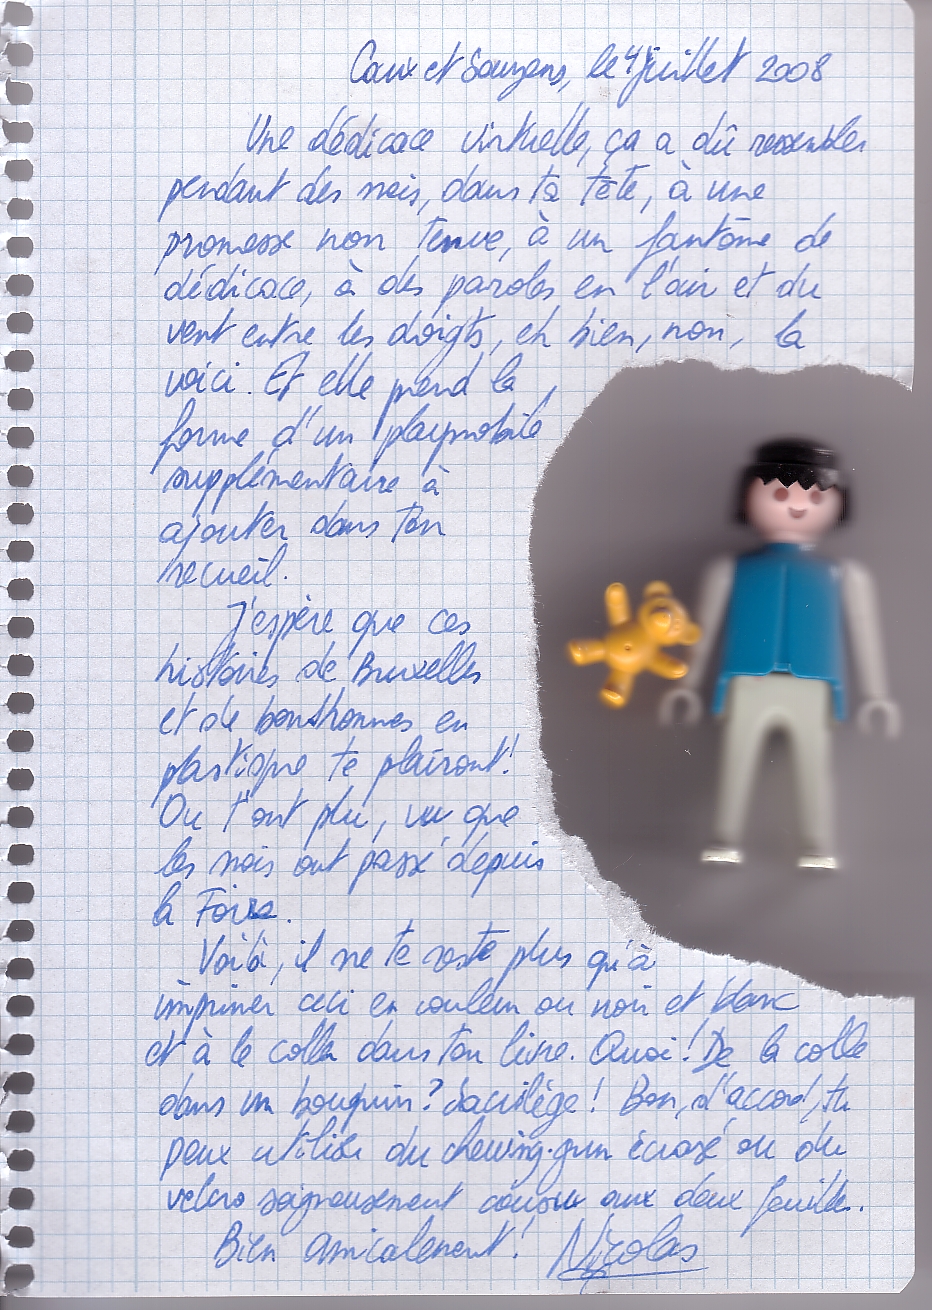 Caux et Sauzens, le 4 juillet 2008
Une dédicace virtuelle, ça a dû ressembler
pendant des mois, dans ta tête, à une
promesse non tenue, à un fantôme de
dédicace, à des paroles en l'air et du
vent entre les doigts, eh bien, non, la
voici. Et elle prend la
forme d'un playmobile
supplémentaire à
ajouter dans ton
recueil.
J'espère que ces
histoires de Bruxelles
et de bonshommes en
plastique te plairont!
Ou t'ont plu, vu que
les mois ont passé depuis
la Foire.
Voilà, il ne te reste plus qu'à
imprimer ceci en couleur ou noir et blanc
et à le coller dans ton livre. Quoi! De la colle
dans un bouquin? Sacrilège! Bon, d'accord, tu
peux utiliser du chewing-gum écrasé ou du
velcro soigneusement cousu aux deux feuilles.
Bien amicalement! Nicolas